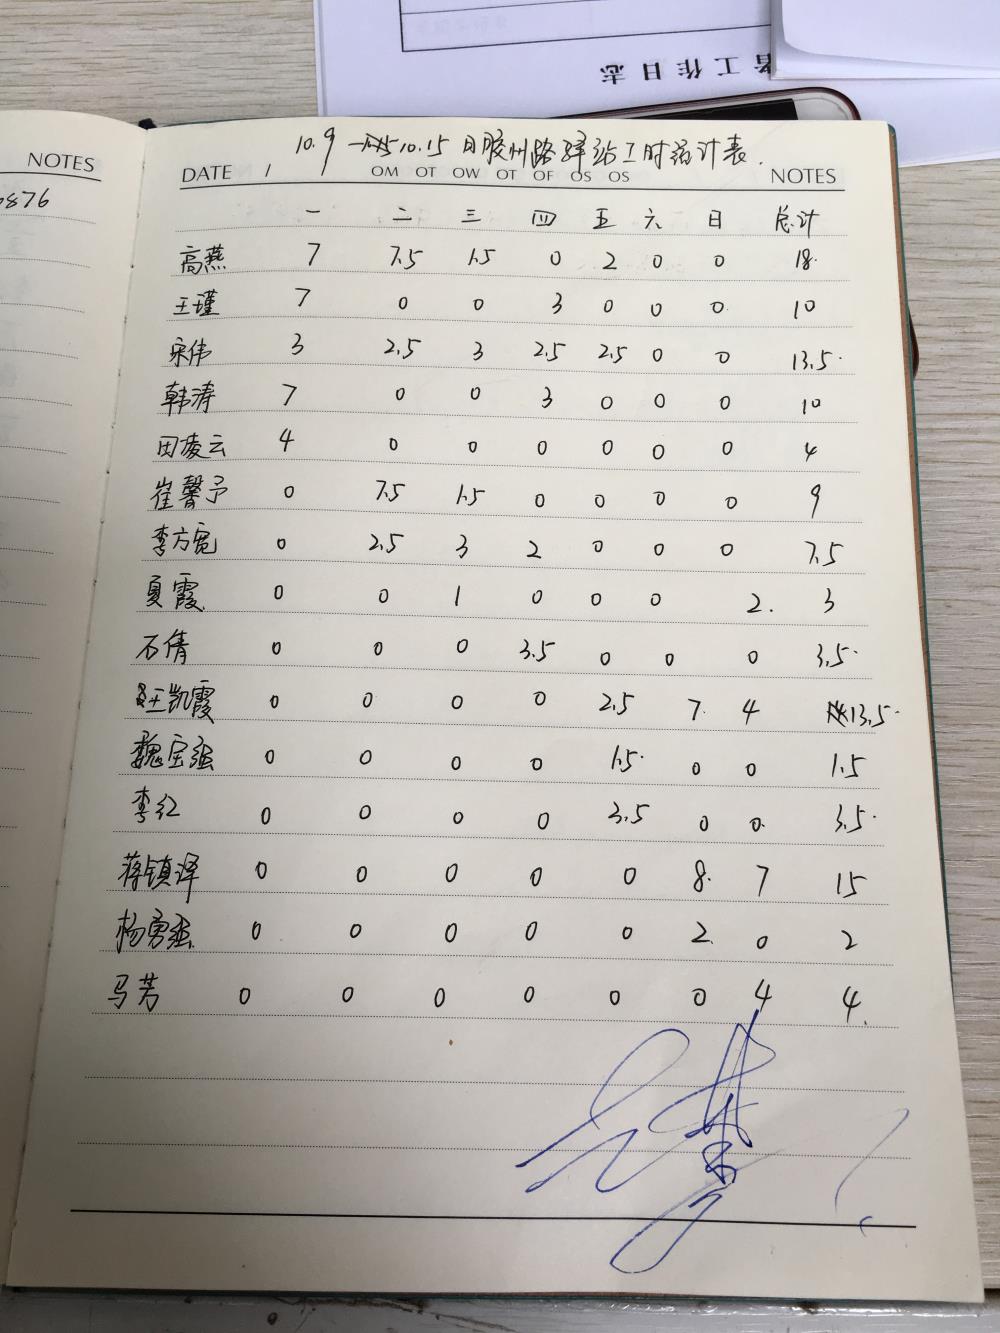 省工作日志
NOTES
876
10.9 — 10.15日胶州路驿站工时统计表.
DATE / OM OT OW OT OF OS OS NOTES
一 二 三 四 五 六 日 总计
高燕 7 7.5 1.5 0 2 0 0 18
王瑾 7 0 0 3 0 0 0 10
宋伟 3 2.5 3 2.5 2.5 0 0 13.5
韩涛 7 0 0 3 0 0 0 10
田凌云 4 0 0 0 0 0 0 4
崔馨予 0 7.5 1.5 0 0 0 0 9
李方宽 0 2.5 3 2 0 0 0 7.5
夏霞 0 0 1 0 0 0 2 3
石倩 0 0 0 3.5 0 0 0 3.5
王凯霞 0 0 0 0 2.5 7 4 13.5
魏宝强 0 0 0 0 1.5 0 0 1.5
李红 0 0 0 0 3.5 0 0 3.5
蒋镇泽 0 0 0 0 0 8 7 15
杨勇强 0 0 0 0 0 2 0 2
马芳 0 0 0 0 0 0 4 4